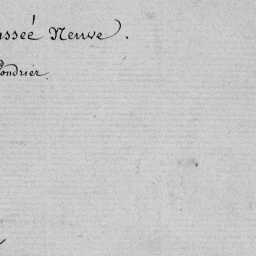 ussée Neuve.
ondrier.